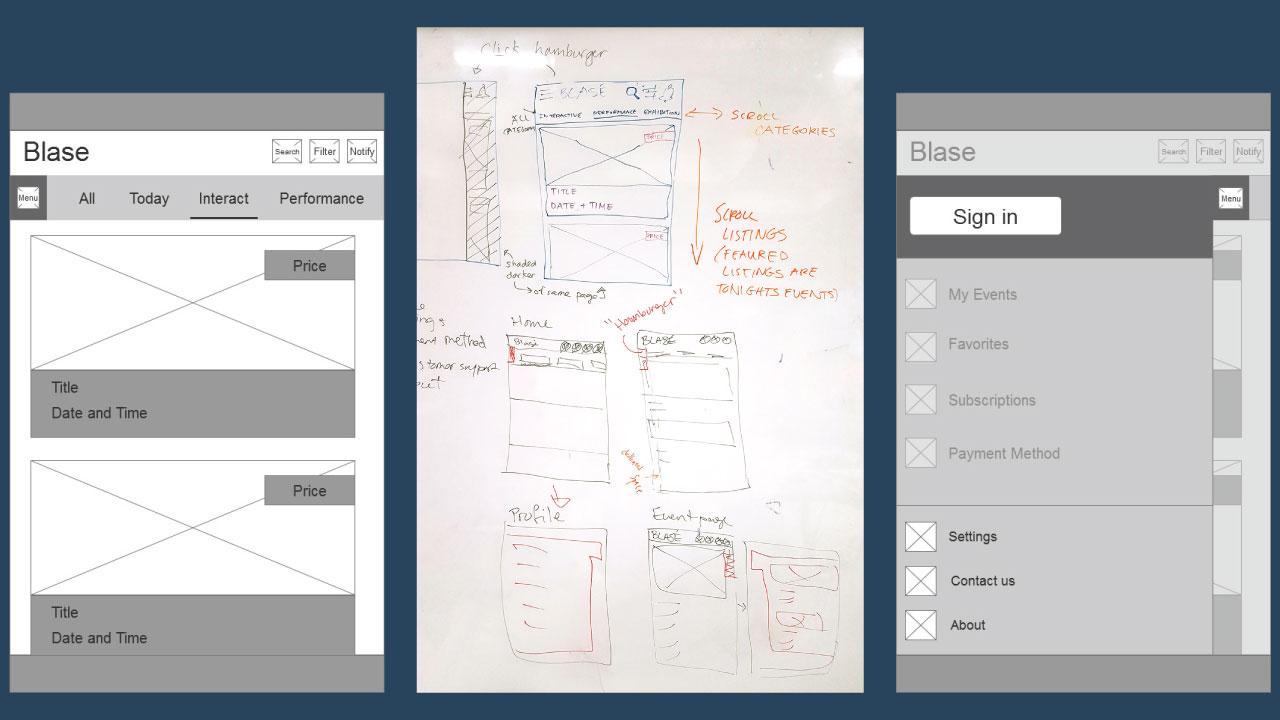 Blase
Search Filter Notify
Menu All Today Interact Performance
Price
Title
Date and Time
Price
Title
Date and Time
Click hamburger
BLASE
ALL
INTERACTIVE PERFORMANCE EXHIBITION
SCROLL
CATEGORIES
PRICE
TITLE
DATE + TIME
PRICE
SCROLL
LISTINGS
(FEAURED
LISTINGS ARE
TONIGHTS EVENTS)
shaded
darker
of same page
"Hamburger"
Home
method
support
Blase
BLASE
Profile
Event page
BLASE
Blase
Search Filter Notify
Menu
Sign in
My Events
Favorites
Subscriptions
Payment Method
Settings
Contact us
About